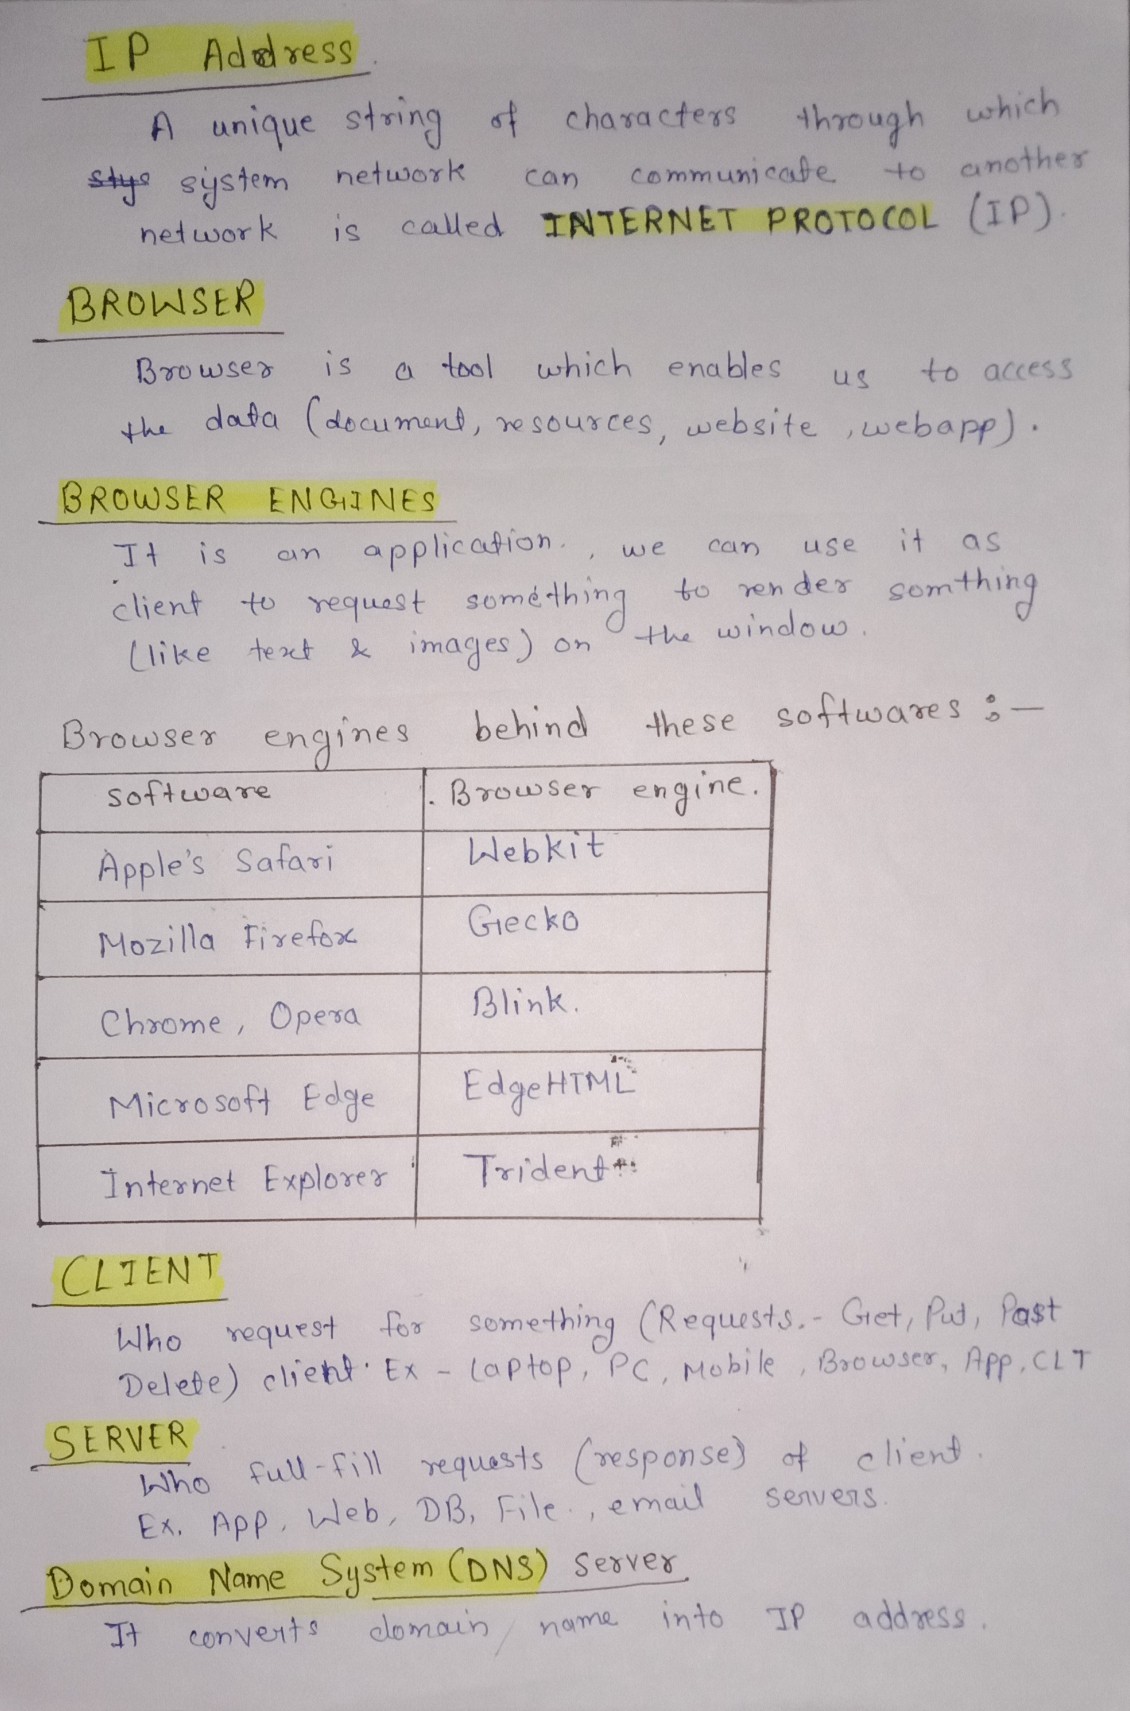 IP Address.
A unique string of characters through which
stys system network can communicate to another
network is called INTERNET PROTOCOL (IP).
BROWSER
Browser is a tool which enables us to access
the data (document, resources, website, webapp).
BROWSER ENGINES
It is an application., we can use it as
client to request something to render somthing
(like text & images) on the window.
Browser engines behind these softwares :-
software Browser engine.
Apple's Safari Webkit
Mozilla Firefox Gecko
Chrome, Opera Blink.
Microsoft Edge EdgeHTML
Internet Explorer Trident
CLIENT
Who request for something (Requests.- Get, Put, Post
Delete) client. Ex - Laptop, PC, Mobile, Browser, App, CLT
SERVER
Who full-fill requests (response) of client.
Ex. App, Web, DB, File., email servers.
Domain Name System (DNS) Server
It converts domain name into IP address.